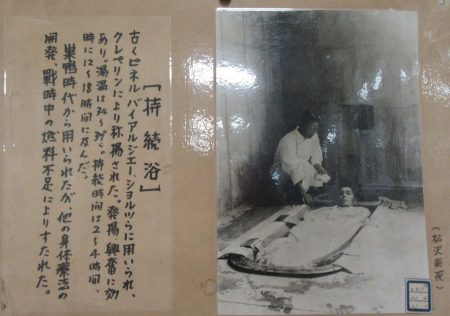 [持続浴]
古くピネル、バイアルジエー、ショルツらに用いられ、
クレペリンにより称揚された。発揚、興奮に効
あり。湯温は34〜36℃。持続時間は2〜4時間、
時に12〜18時間に及んだ。
巣鴨時代から用いられたが、他の身体療法の
開発、戦時中の燃料不足によりすたれた。